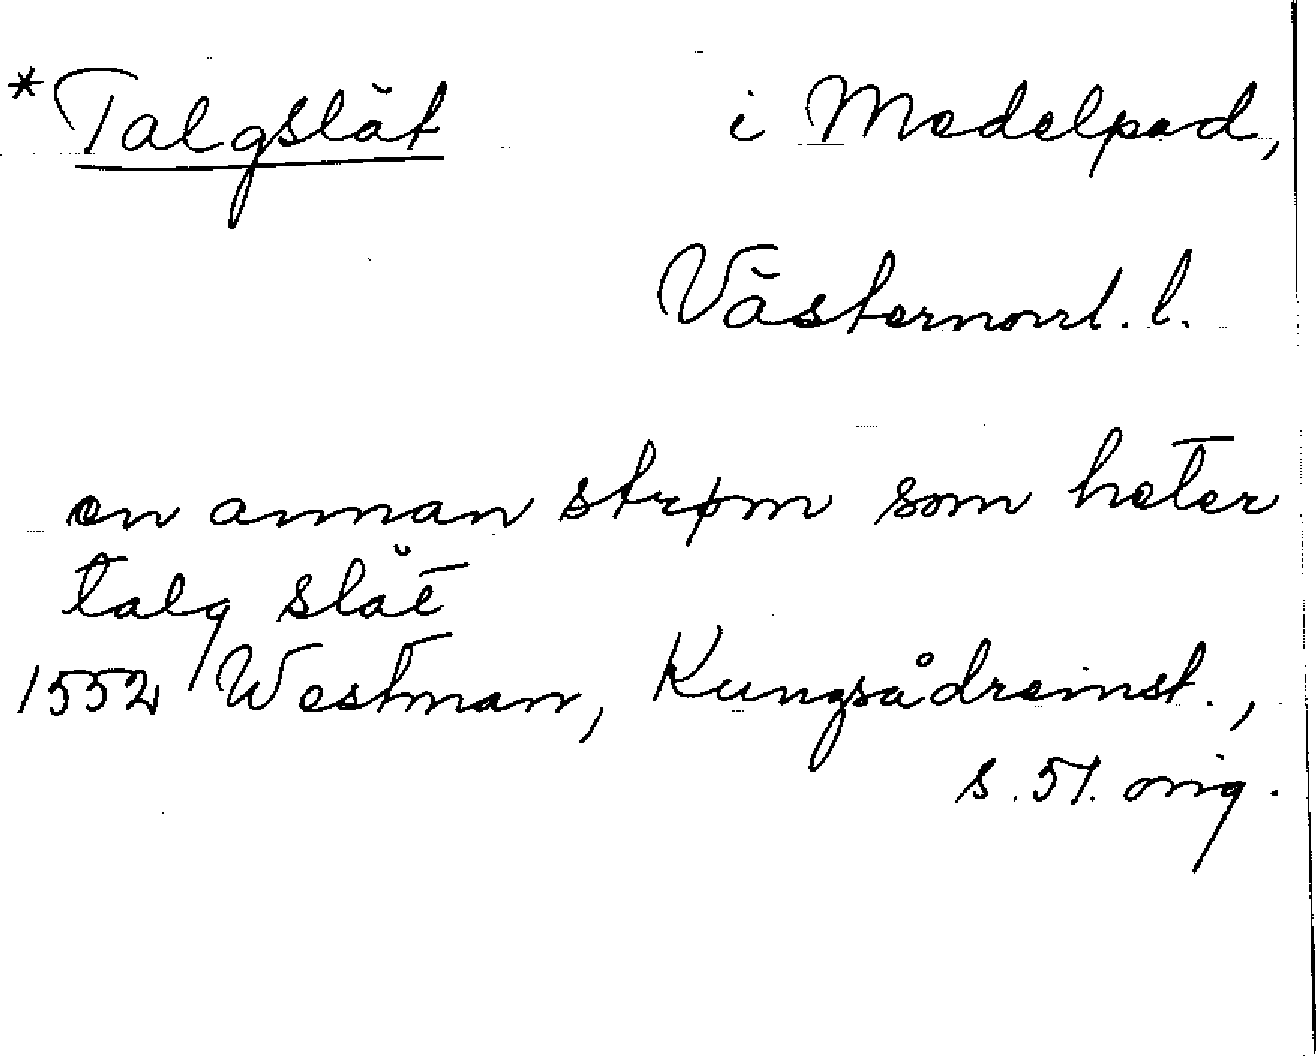 *Talgslät i Medelpad,
Västernorrl. l.
en annan strøm som heter
talg slät
1552 Westman, Kungsådreinst.,
s. 51. orig.